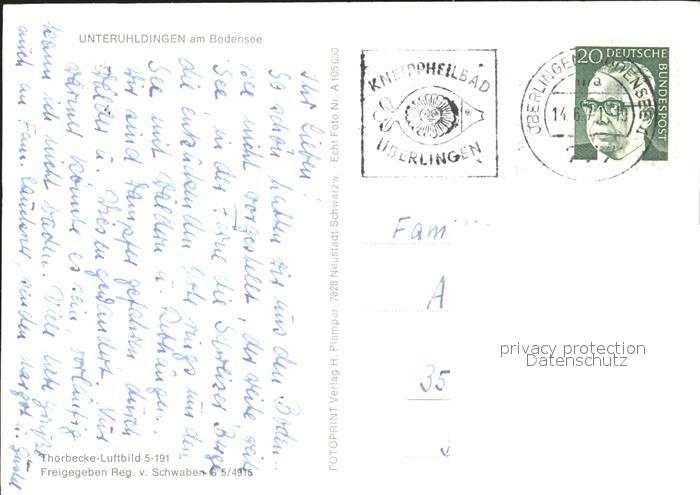 UNTERUHLDINGEN am Bodensee
Ihr Lieben!
So schön hatten wir uns den Boden-
see nicht vorgestellt, der weite, weite
See, in der Ferne die Schweizer Berge
die entzückenden Orte rings um den
See mit Wäldern u.
Wir sind Dampfer gefahren durch
Wälder u. Wiesen gewandert. Nur
wärmer könnte es sein, vorläufig
kann ich nicht baden. Viele liebe Grüße
auch an Fam. senden Margot u. Günter
Thorbecke-Luftbild 5-191
Freigegeben Reg. v. Schwaben G 5/4915
FOTOPRINT Verlag H. Plamper, 7828 Neustadt Schwarzw. Echt Foto Nr. A 105 650
KNEIPPHEILBAD
ÜBERLINGEN
ÜBERLINGEN, BODENSEE 1
14.6.71
20 DEUTSCHE
BUNDESPOST
Fam
A
35
privacy protection
Datenschutz